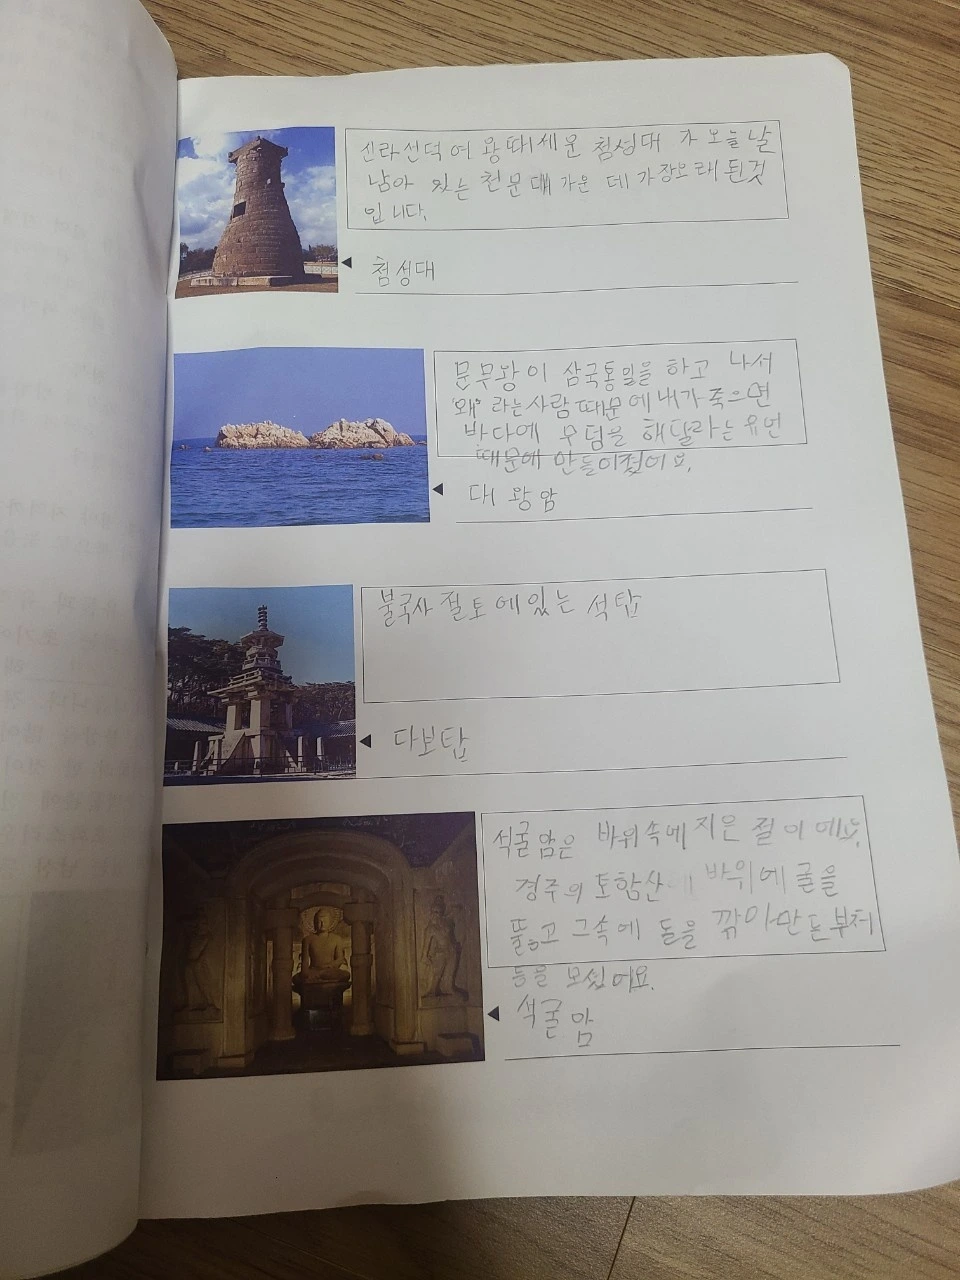 신라선덕여왕때세운 첨성대 가 오늘날
남아 있는 천문대 가운 데 가장오래된것
입니다.
첨성대
문무왕이 삼국통일을 하고 나서
'왜' 라는사람때문에내가죽으면
바다에 무덤을 해달라는유언
때문에 만들어졌어요.
대왕암
불국사 절토에있는 석탑
다보탑
석굴암은 바위속에 지은 절이에요.
경주의 토함산에 바위에 굴을
뚫고 그속에 돌을 깎아만든부처
등을 모셨어요.
석굴암